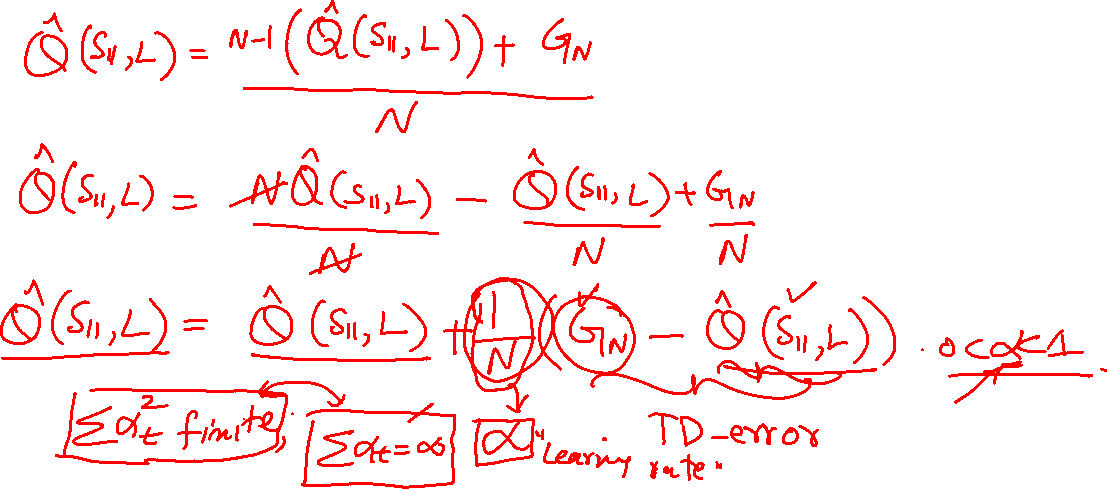 Q̂(S₁₁,L) = N-1(Q̂(S₁₁,L)) + G_N / N
Q̂(S₁₁,L) = NQ̂(S₁₁,L) / N - Q̂(S₁₁,L) / N + G_N / N
Q̂(S₁₁,L) = Q̂(S₁₁,L) + 1/N (G_N - Q̂(S₁₁,L)). 0<α<1.
Σα_t² finite, Σα_t = ∞ α "Learning rate" TD-error